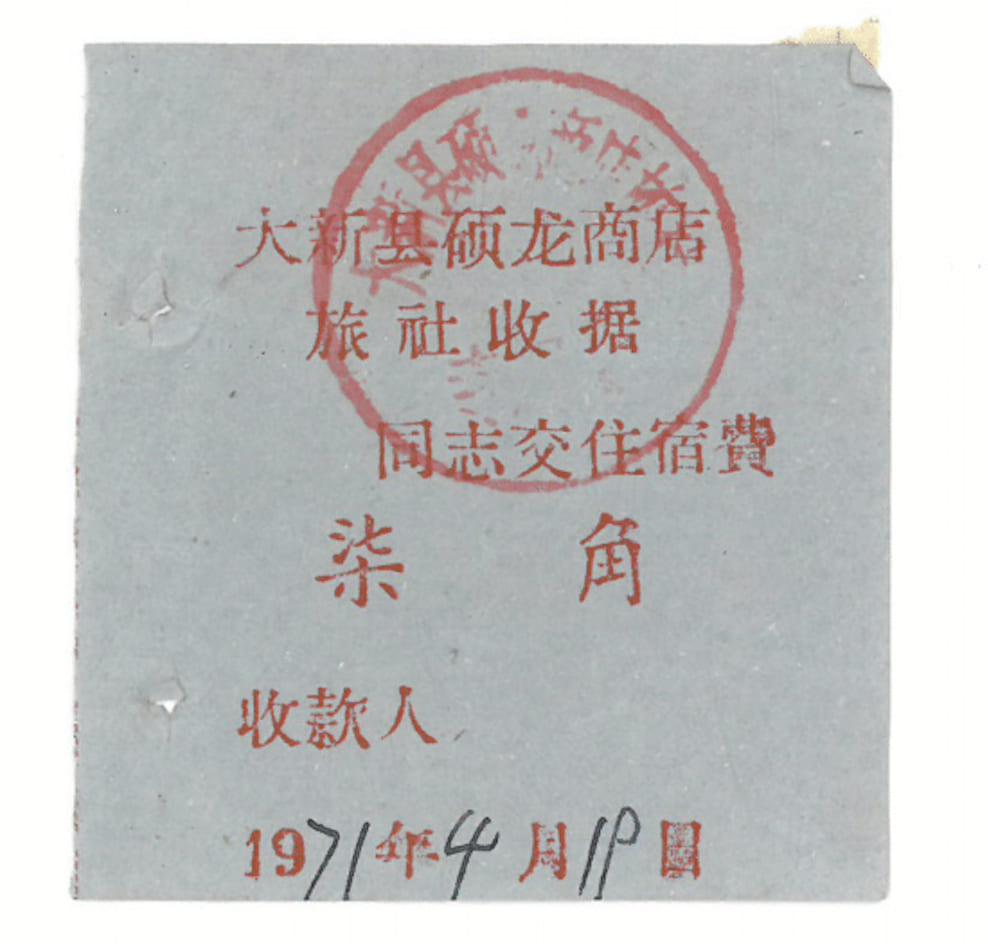 大新县硕龙商店
旅社收据
同志交住宿費
柒 角
收款人
1971年4月19日